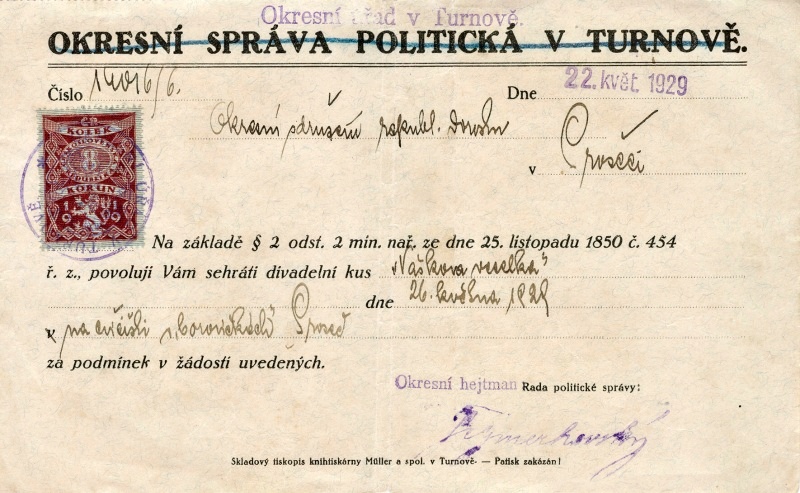 Okresní úřad v Turnově.
OKRESNÍ SPRÁVA POLITICKÁ V TURNOVĚ.
Číslo 14016/6. Dne 22. květ. 1929
Okresní sdružení republ. dorostu
v Prosíči
KOLEK
8
KORUN
1919
Na základě § 2 odst. 2 min. nař. ze dne 25. listopadu 1850 č. 454
ř. z., povoluji Vám sehráti divadelní kus „Vaškova veselka"
dne 26. května 1929
v na cvičišti v „borovičkách" Proseč
za podmínek v žádosti uvedených.
Okresní hejtman Rada politické správy:
Skladový tiskopis knihtiskárny Müller a spol. v Turnově. — Patisk zakázán!